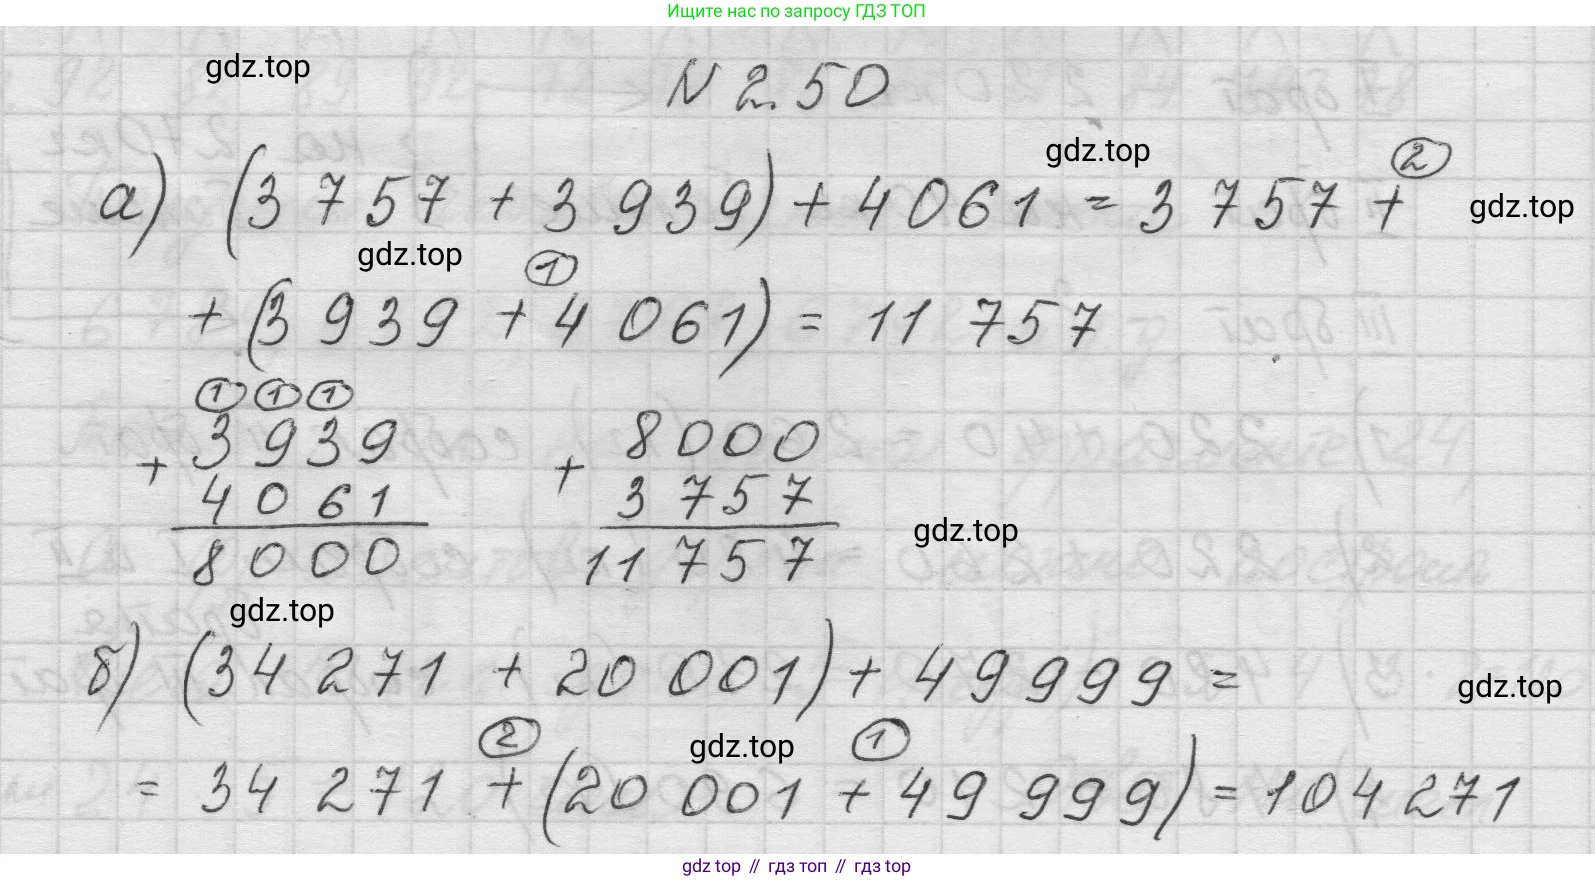 Ищите нас по запросу ГДЗ ТОП
gdz.top
N 2.50
gdz.top
②
а) (3 757 + 3 939) + 4 061 = 3 757 +
gdz.top
gdz.top
①
+ (3 939 + 4 061) = 11 757
① ① ①
3 939
+
4 061
8 000
8 000
+
3 757
11 757
gdz.top
gdz.top
б) (34 271 + 20 001) + 49 999 =
gdz.top
② gdz.top ①
= 34 271 + (20 001 + 49 999) = 104 271
gdz top // гдз топ // gdz top